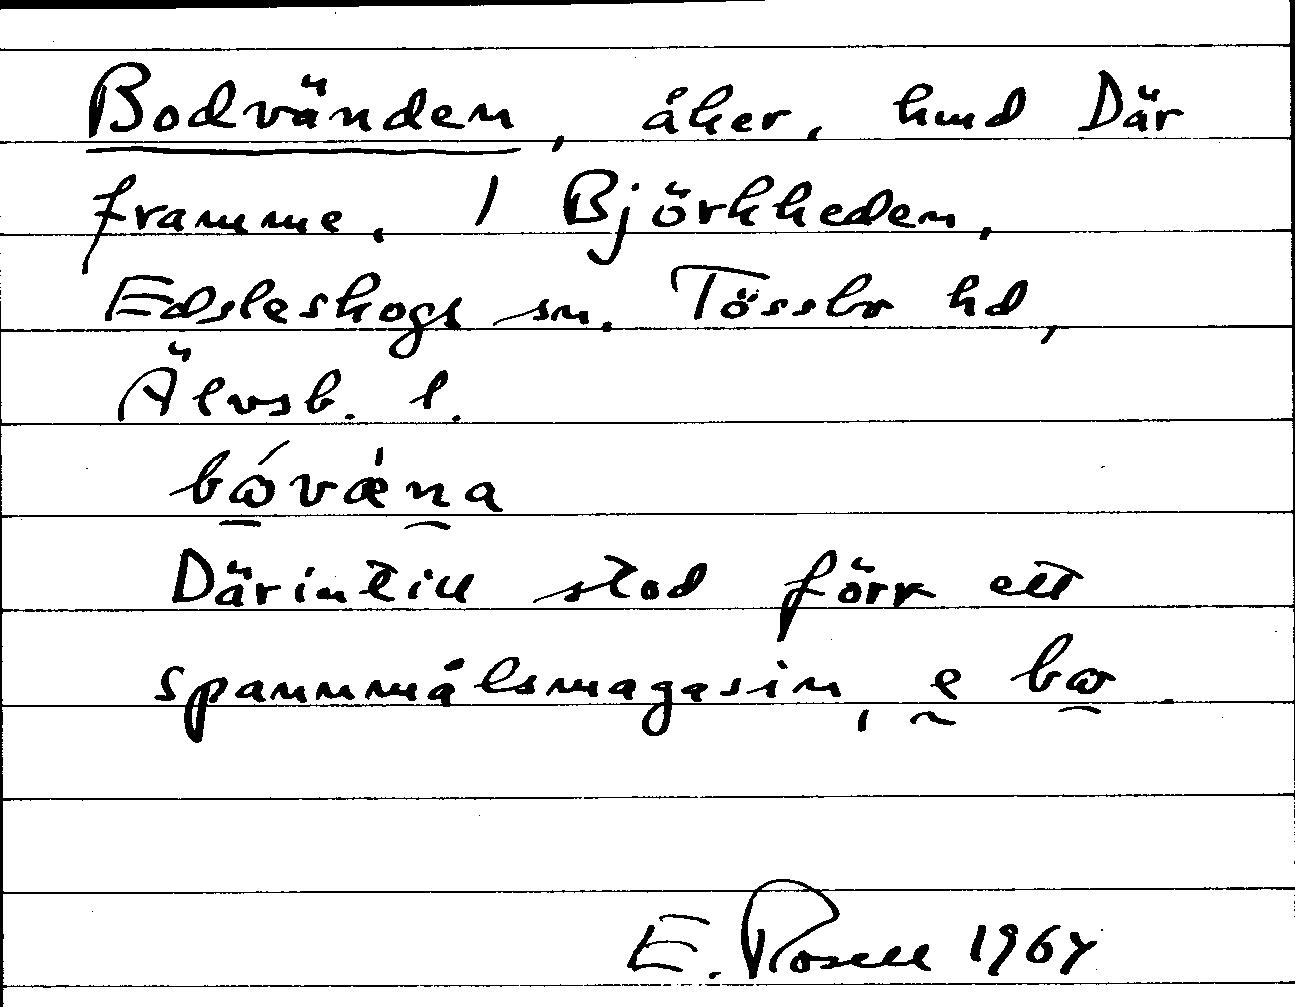 Bodvänden, åker, hmd Där
framme, 1 Björkheden,
Edsleskogs sn. Tössbo hd,
Älvsb. l.
bώvǽna
Därintill stod förr ett
spannmålsmagasin, e bω
E. Rosell 1967